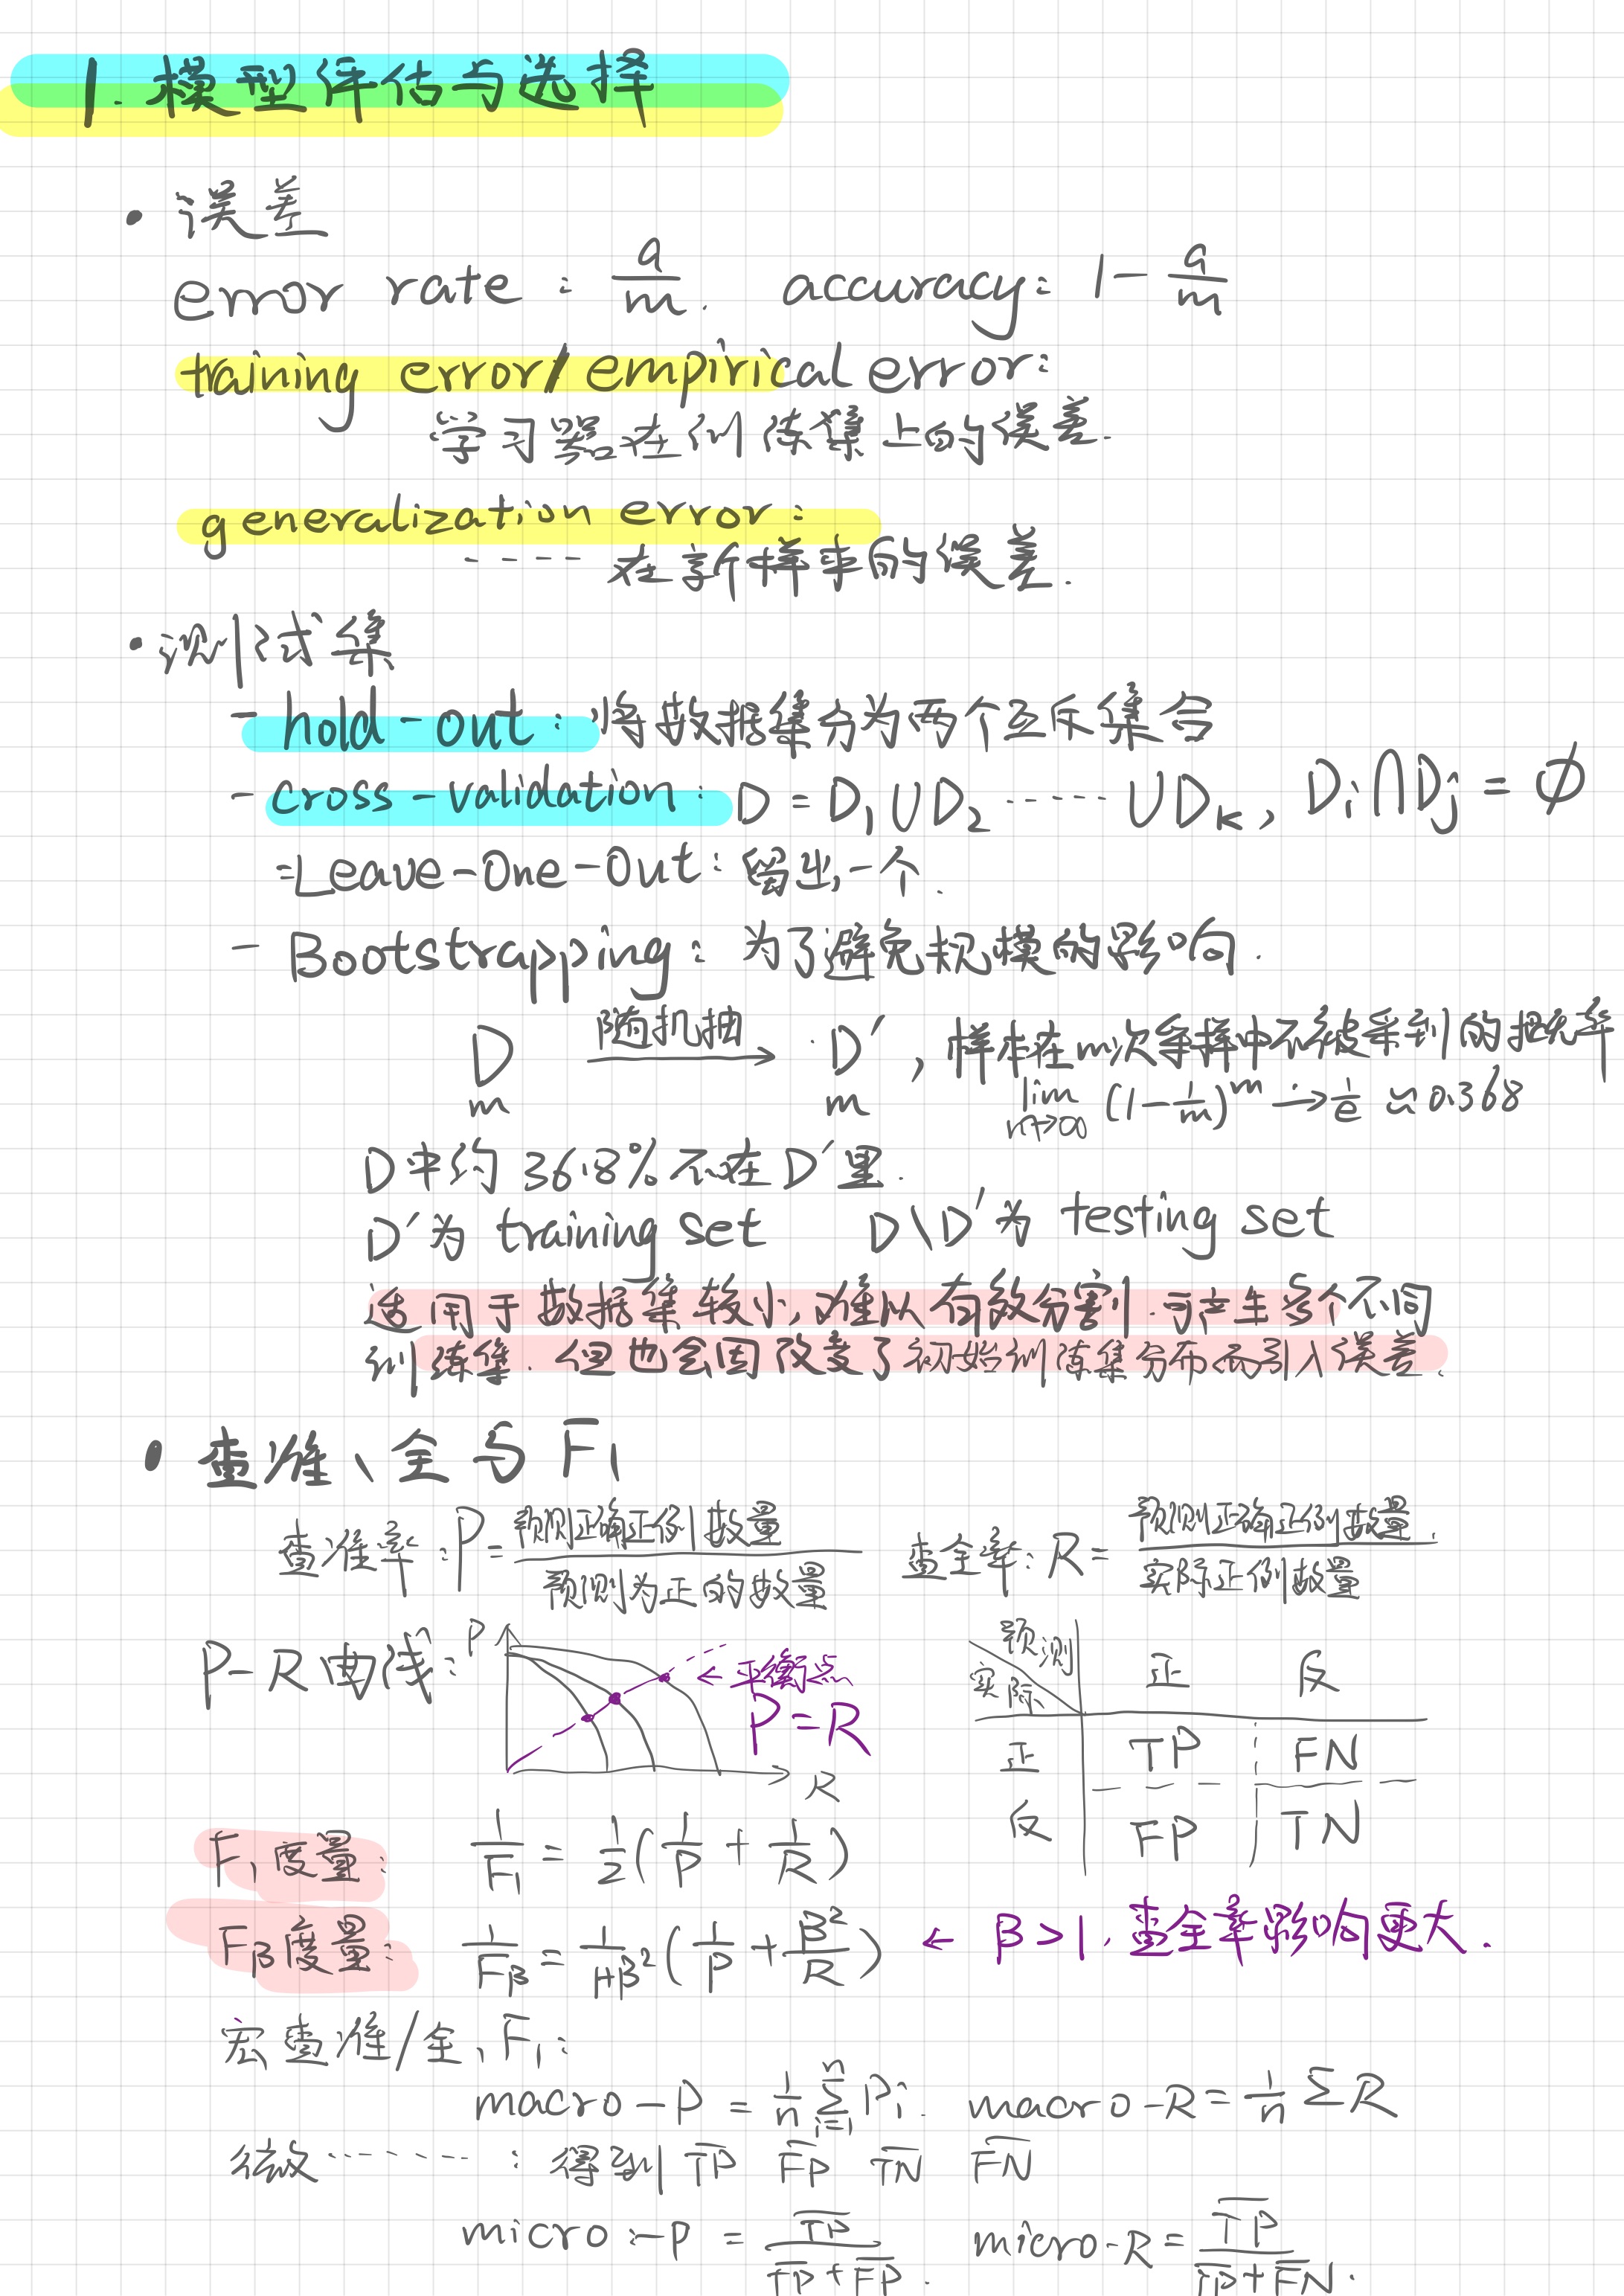 1. 模型评估与选择
· 误差
error rate : a/m. accuracy: 1 - a/m
training error/empirical error:
学习器在训练集上的误差.
generalization error:
----- 在新样本的误差.
· 测试集
- hold-out: 将数据集分为两个互斥集合
- cross-validation: D = D₁∪D₂ ······ ∪Dₖ, Dᵢ∩Dⱼ = ∅
=Leave-One-Out: 留出一个.
- Bootstrapping: 为了避免规模的影响.
D 随机抽→ D′, 样本在m次采样中不被采到的概率
m m lim n→∞ (1-1/m)^m → 1/e ≈ 0.368
D中约 36.8% 不在D′里.
D′为 training set D\D′为 testing set
适用于数据集较小,难以有效分割.可产生多个不同
训练集. 但也会因改变了初始训练集分布而引入误差.
· 查准、全与F₁
查准率: P = 预测正确正例数量/预测为正的数量 查全率: R = 预测正确正例数量/实际正例数量.
P-R曲线: P R ← 平衡点 P=R
预测 实际 正 反
正 TP FN
反 FP TN
F₁度量: 1/F₁ = 1/2(1/P + 1/R)
Fβ度量: 1/Fβ = 1/(1+β²)(1/P + β²/R) ← β>1, 查全率影响更大.
宏查准/全、F₁:
macro-P = 1/n Σ_{i=1}^{n} Pᵢ. macro-R = 1/n ΣR
微 ······· : 得到 T̅P̅ F̅P̅ T̅N̅ F̅N̅
micro-P = T̅P̅/(T̅P̅+F̅P̅). micro-R = T̅P̅/(T̅P̅+F̅N̅).